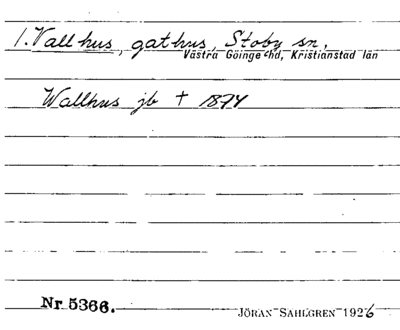 1. Vallhus, gathus, Stoby sn,
Västra Göinge hd, Kristianstad län
Wallhus jb † 1874
Nr 5366.
JÖRAN SAHLGREN 1926